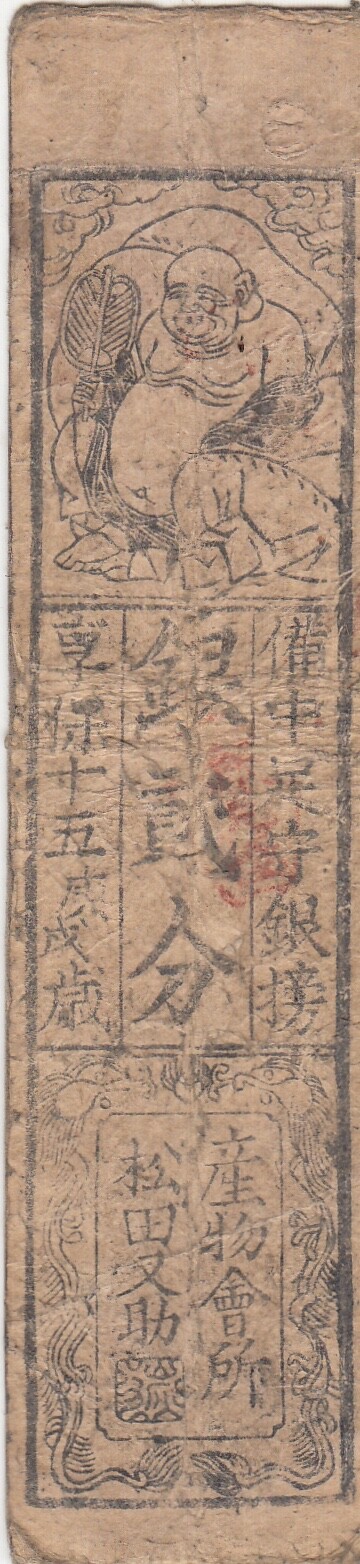 備中呉字銀榜
銀貳分
享保十五庚戌歳
産物會所
松田又助